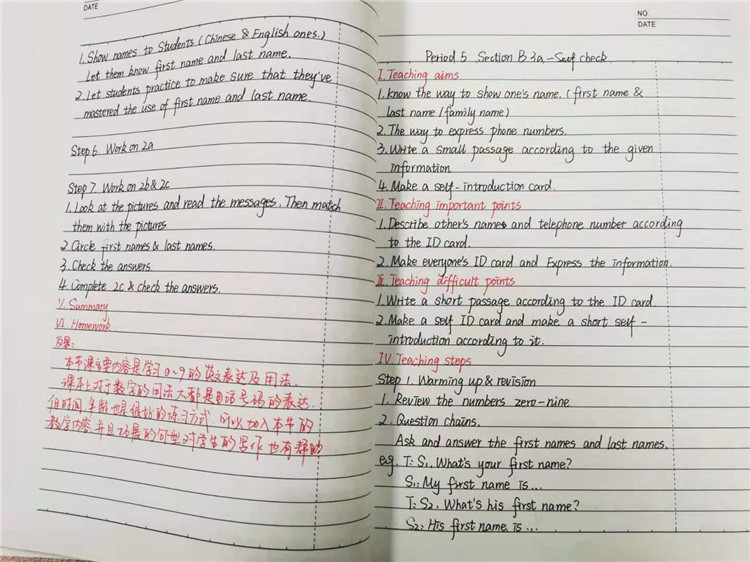 1. Show names to Students (Chinese & English ones.)
Let them know first name and last name.
2. Let students practice to make sure that they've
mastered the use of first name and last name.
Step 6 Work on 2a
Step 7 Work on 2b & 2c
1. Look at the pictures and read the messages. Then match
them with the pictures
2. Circle first names & last names.
3. Check the answers.
4. Complete 2c & check the answers.
V. Summary
VI. Homework
本节课主要内容是学习0~9的英文表达及用法.
课本上对于数字的用法大都是电话号码的表达.
但时间、年龄也是很好的练习方式. 可以加入本节的
教学内容.并且拓展的句型对学生的思维也有帮助
DATE
NO.
DATE
Period 5 Section B 3a - Self check
I. Teaching aims
1. know the way to show one's name. (first name &
last name / family name)
2. The way to express phone numbers.
3. Write a small passage according to the given
information
4. Make a self-introduction card.
II. Teaching important points
1. Describe other's names and telephone number according
to the ID card.
2. Make everyone's ID card and Express the information.
III. Teaching difficult points
1. Write a short passage according to the ID card
2. Make a self ID card and make a short self-
introduction according to it.
IV. Teaching steps
Step 1. Warming up & revision
1. Review the numbers zero-nine
2. Question chains.
Ask and answer the first names and last names.
e.g. T: S1, What's your first name?
S1: My first name is...
T: S2. What's his first name?
S2: His first name is ...